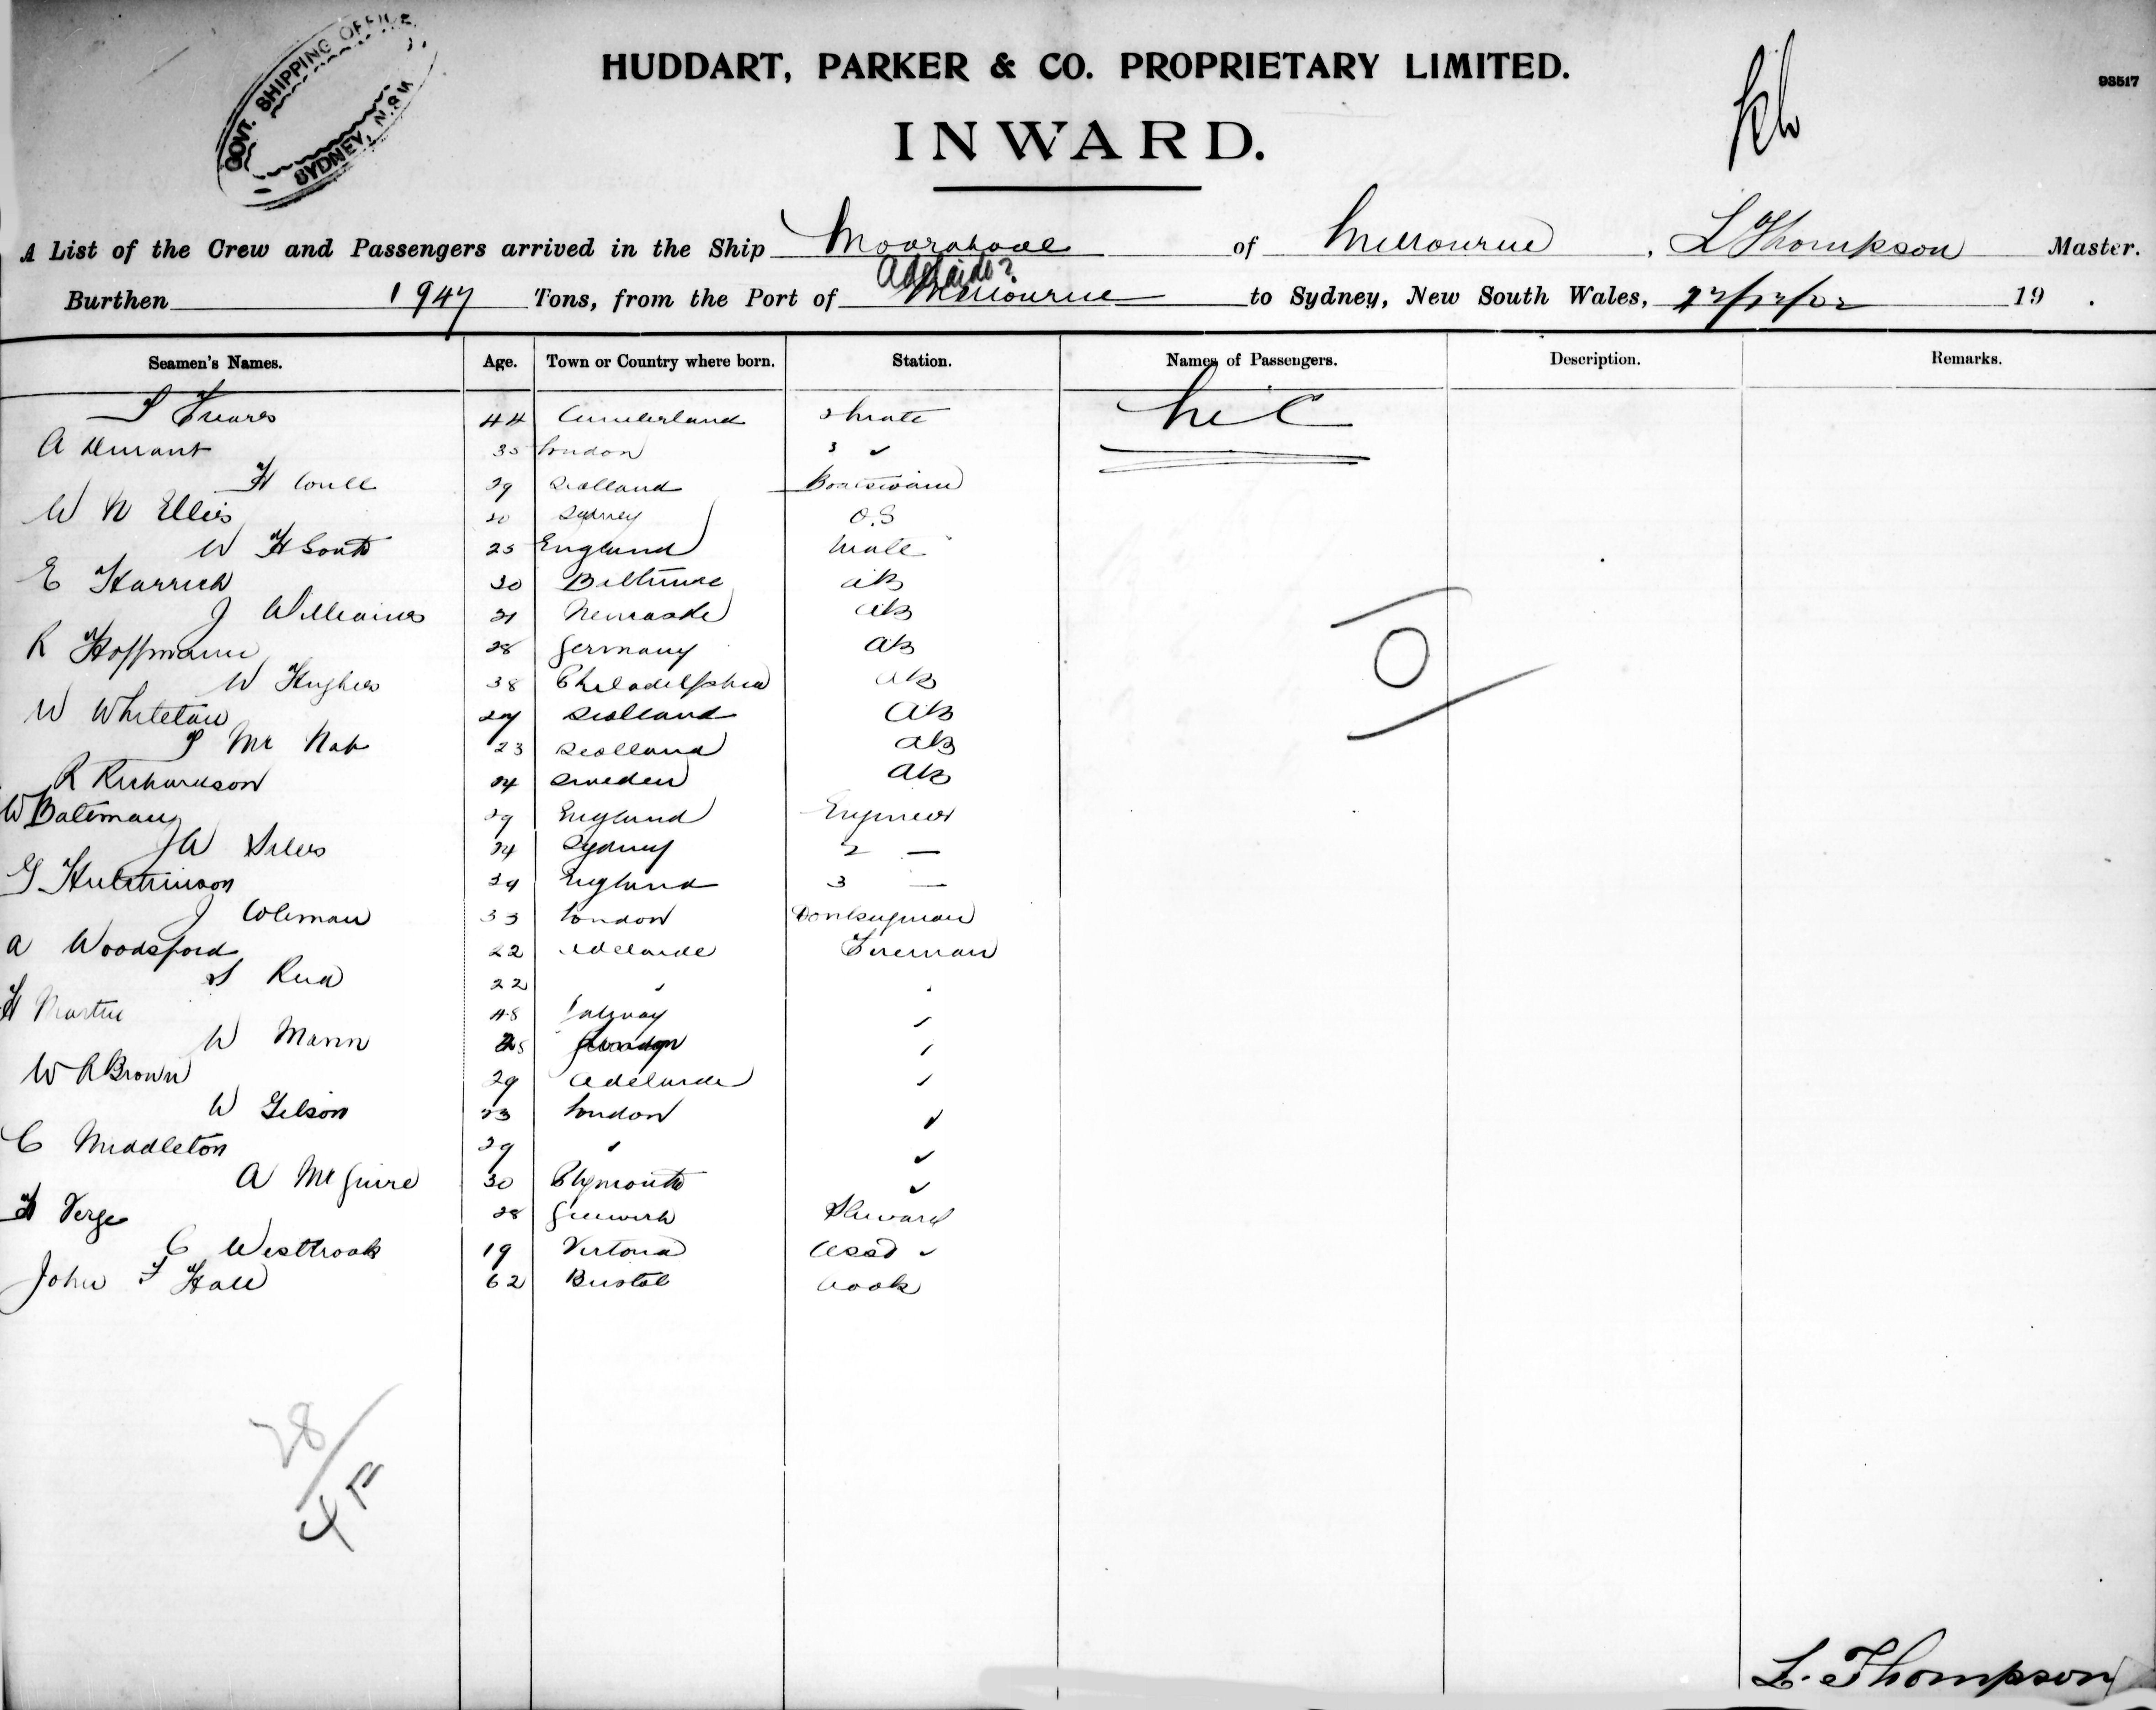 GOVT. SHIPPING OFFICE,
SYDNEY, N.S.W
HUDDART, PARKER & CO. PROPRIETARY LIMITED.
93517
INWARD.
A List of the Crew and Passengers arrived in the Ship of Melbourne, L Thompson Master.
Adelaide?
Burthen 1947 Tons, from the Port of Melbourne to Sydney, New South Wales, 12/02 19 .
Seamen's Names. Age. Town or Country where born. Station. Names of Passengers. Description. Remarks.
44 Cumberland 2 Mate Nil
A Durant 35 London 3 ✓
H Coull 29 Scotland Boatswain
W N Ellis 20 Sydney O.S
W H South 25 England Mate
E 30 AB
J Williams 21 AB
R Hoffmann 28 Germany AB
W Hughes 38 Philadelphia AB
W 27 Scotland AB
Mc Nab 23 Scotland AB
R Richardson 24 Sweden AB
W Bateman 29 England Engineer
J W 24 Sydney 2 —
G Hutchinson 39 England 3 —
J Coleman 33 London Donkeyman
A Woodsford 22 Adelaide Fireman
S Reid 22 " "
H Martin 48 Galway ✓
W Mann 25 London ✓
W R Brown 29 Adelaide ✓
W Gilson 23 London ✓
C Middleton 29 " ✓
A McGuire 30 Plymouth ✓
H Verge 28 Greenwich Steward
C Westbrook 19 Victoria Asst ✓
John F Hall 62 Bristol Cook
0
28
4 F
L. Thompson